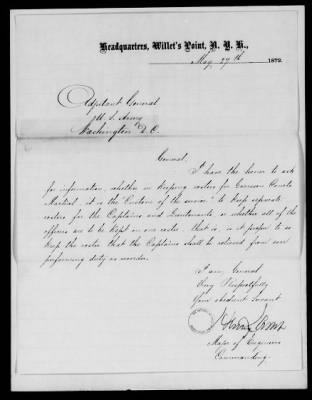 Headquarters, Willet's Point, N. Y. H.,
May 27th 1872.
Adjutant General
U. S. Army
Washington D. C.
General,
I have the honor to ask
for information, whether in keeping rosters for Garrison Courts
Martial, it is the Custom of the service to keep separate
rosters for the Captains and Lieutenants or whether all of the
officers are to be kept on one roster, that is, is it proper to so
keep the roster that the Captains shall be relieved from ever
performing duty as recorder.
I am General
Very Respectfully
Your obedient Servant
Major of Engineers
Commanding.